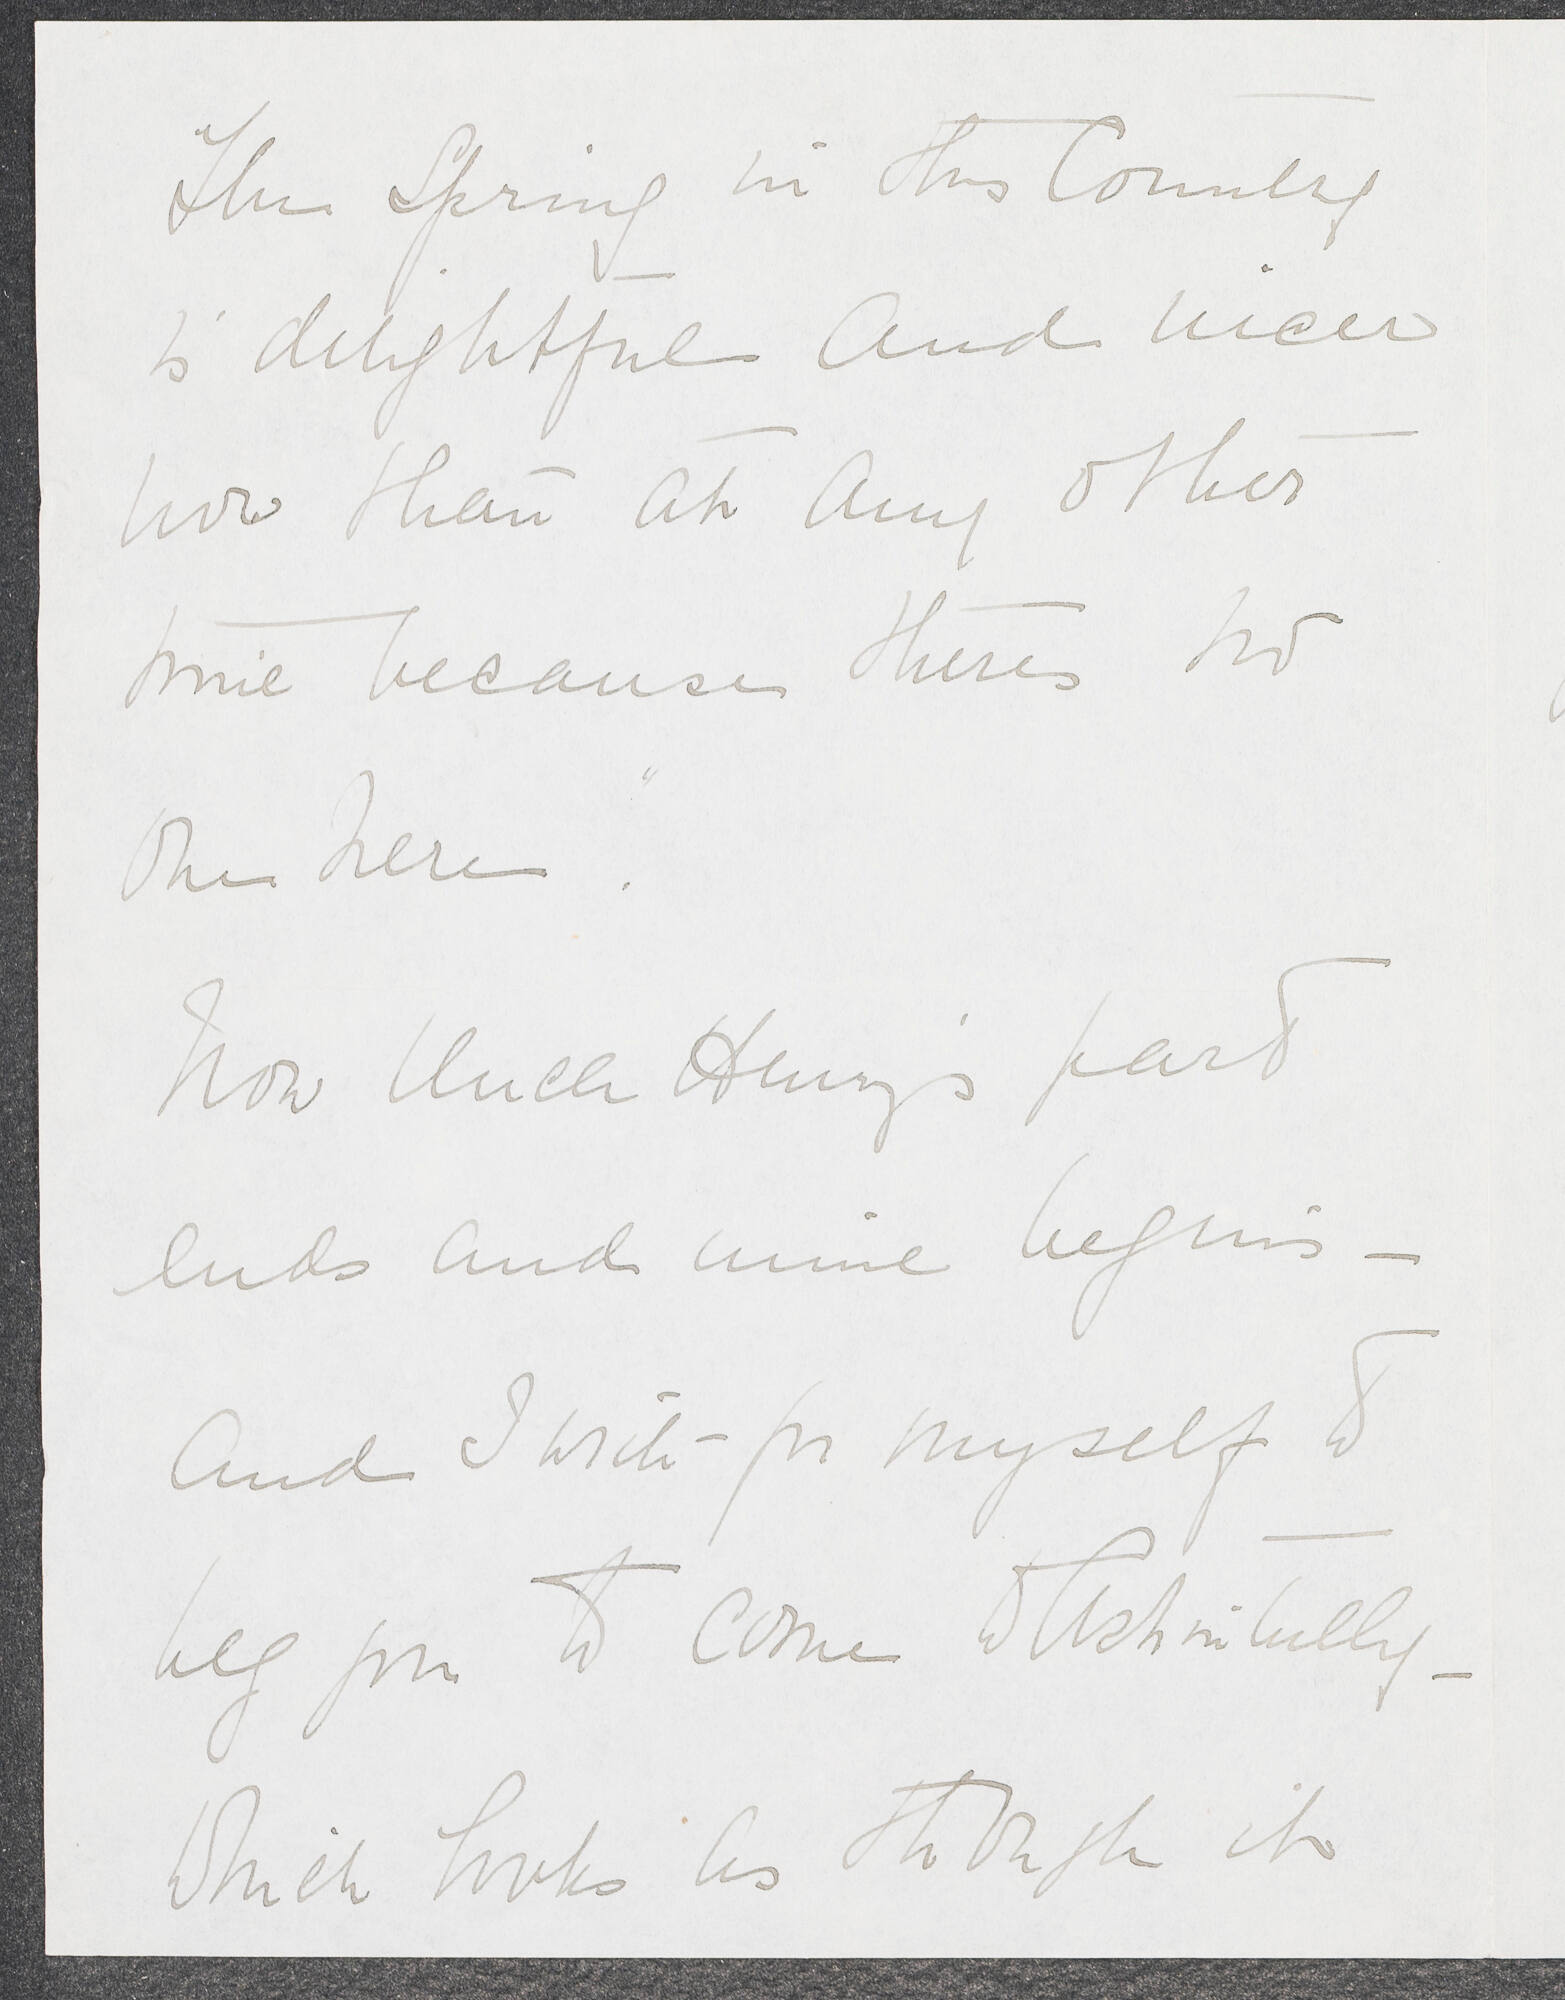 The Spring in this Country
is delightful and nicer
now than at any other
time because theres no
one here."
Now Uncle Henry's part
ends and mine begins –
And I write – for myself to
beg you to come to Ashintully –
Which looks as though it